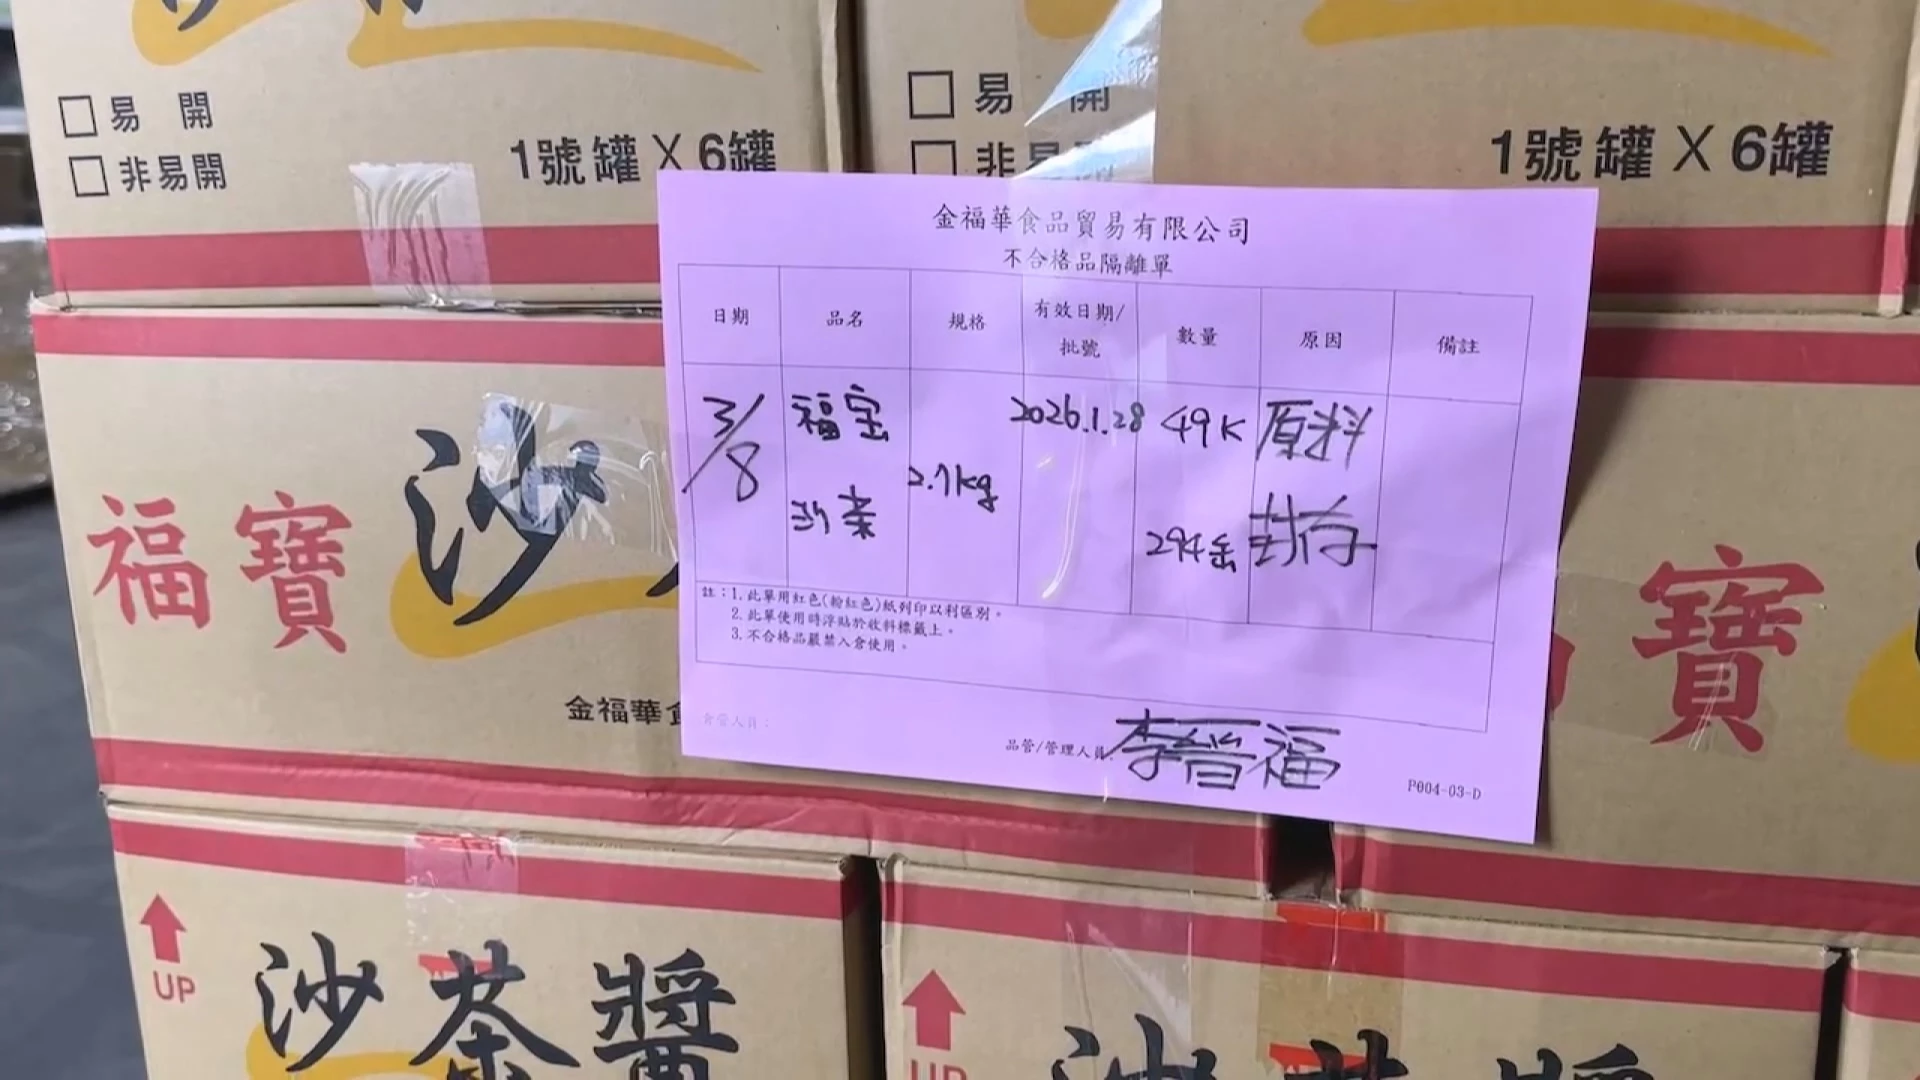 易 開
非易開
1號罐 X 6罐
易 開
非易開
1號罐 X 6罐
金福華食品貿易有限公司
不合格品隔離單
日期 品名 規格 有效日期/批號 數量 原因 備註
3/8 福宝 2026.1.28 49K 原料
沙茶 2.7kg 294缶 封存
註：1.此單用紅色(粉紅色)紙列印以利區別。
2.此單使用時浮貼於收料標籤上。
3.不合格品嚴禁入倉使用。
品管/管理人員: 李晉福
P004-03-D
福寶 沙
金福華食
寶
UP
沙茶醬
UP